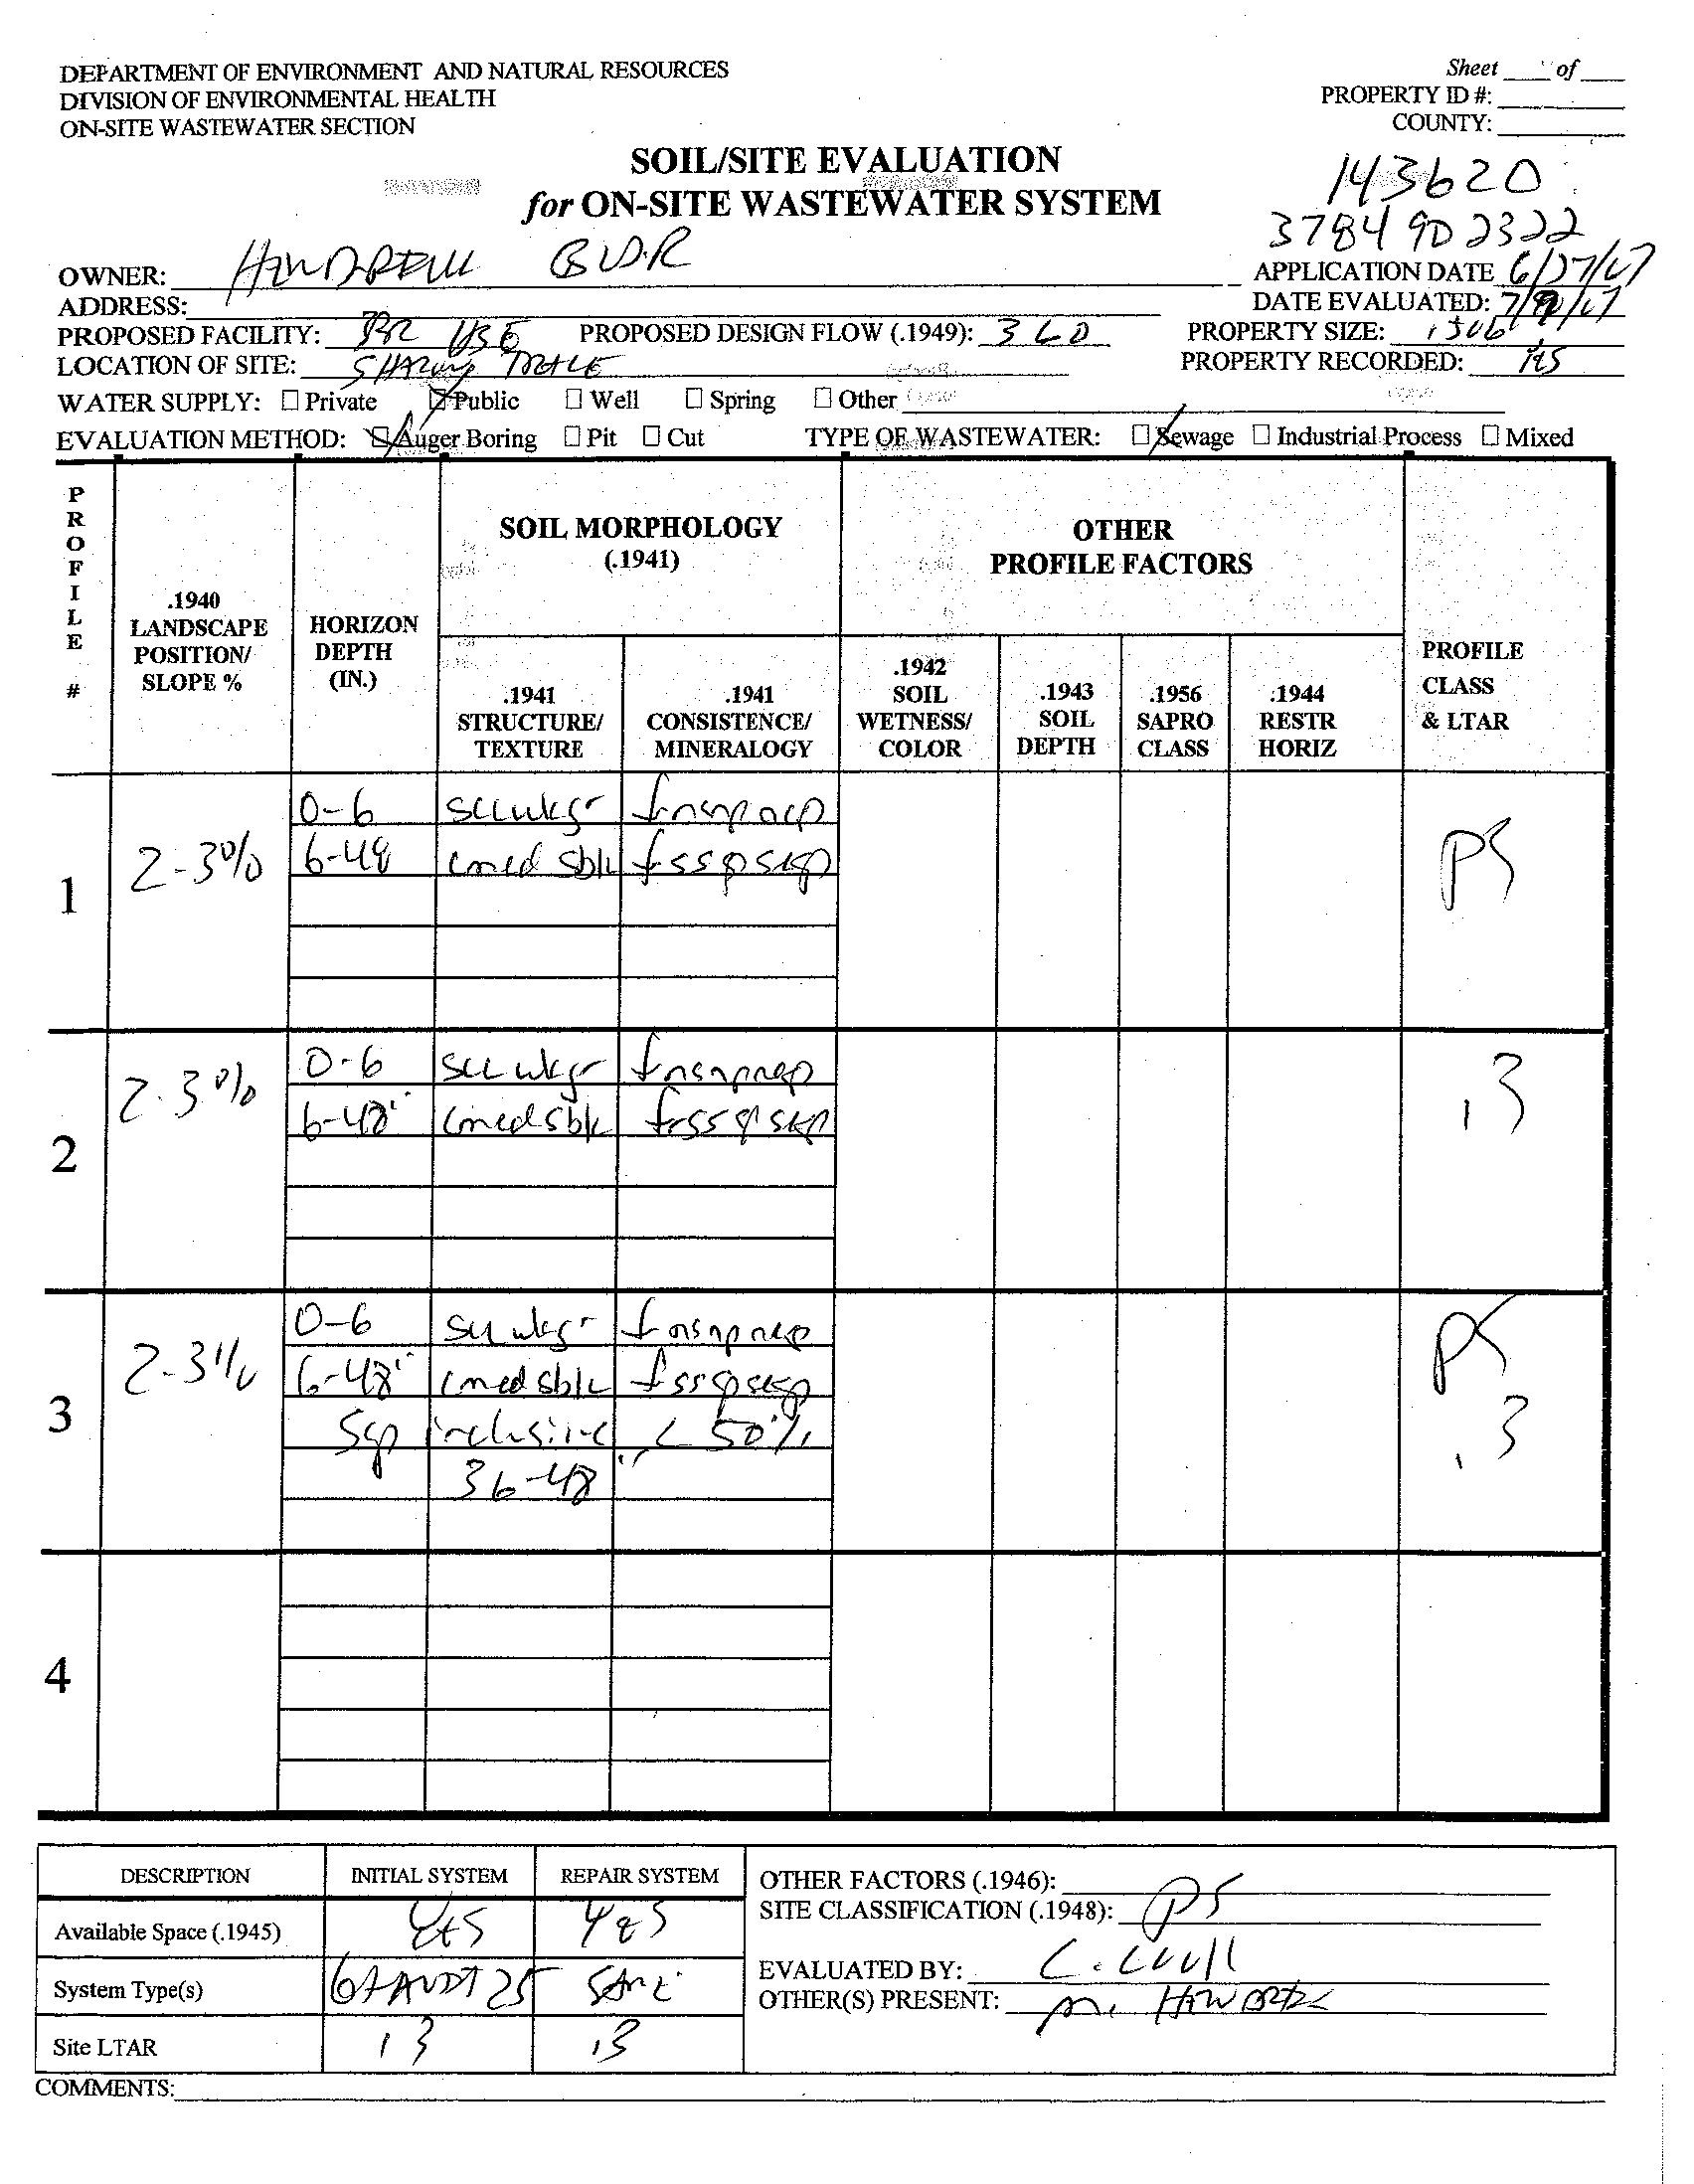 DEPARTMENT OF ENVIRONMENT AND NATURAL RESOURCES
DIVISION OF ENVIRONMENTAL HEALTH
ON-SITE WASTEWATER SECTION
Sheet ____ of ____
PROPERTY ID #:
COUNTY:
SOIL/SITE EVALUATION
for ON-SITE WASTEWATER SYSTEM
143620
3784 90 2322
OWNER: BLDR
APPLICATION DATE 6/27/07
ADDRESS:
DATE EVALUATED:
PROPOSED FACILITY: PROPOSED DESIGN FLOW (.1949): 360 PROPERTY SIZE: .306
LOCATION OF SITE: PROPERTY RECORDED: Yes
WATER SUPPLY: ☐ Private ☒ Public ☐ Well ☐ Spring ☐ Other
EVALUATION METHOD: ☒ Auger Boring ☐ Pit ☐ Cut TYPE OF WASTEWATER: ☒ Sewage ☐ Industrial Process ☐ Mixed
PROFILE #
.1940 LANDSCAPE POSITION/ SLOPE %
HORIZON DEPTH (IN.)
SOIL MORPHOLOGY (.1941)
.1941 STRUCTURE/ TEXTURE
.1941 CONSISTENCE/ MINERALOGY
OTHER PROFILE FACTORS
.1942 SOIL WETNESS/ COLOR
.1943 SOIL DEPTH
.1956 SAPRO CLASS
.1944 RESTR HORIZ
PROFILE CLASS & LTAR
1 2-3% PS
0-6 SCL wkgr frnsnpnexp
6-48 C med sbk frsspsexp
2 2-3% .3
0-6 SCL wkgr frnsnpnexp
6-48" C med sbk frsspsexp
3 2-3% PS .3
0-6 SCL wkgr frnsnpnexp
6-48" C med sbk frsspsexp
Sap < 50%
36-48"
4
DESCRIPTION INITIAL SYSTEM REPAIR SYSTEM
Available Space (.1945) Yes Yes
System Type(s) 25 Same
Site LTAR .3 .3
OTHER FACTORS (.1946):
SITE CLASSIFICATION (.1948): PS
EVALUATED BY:
OTHER(S) PRESENT:
COMMENTS: